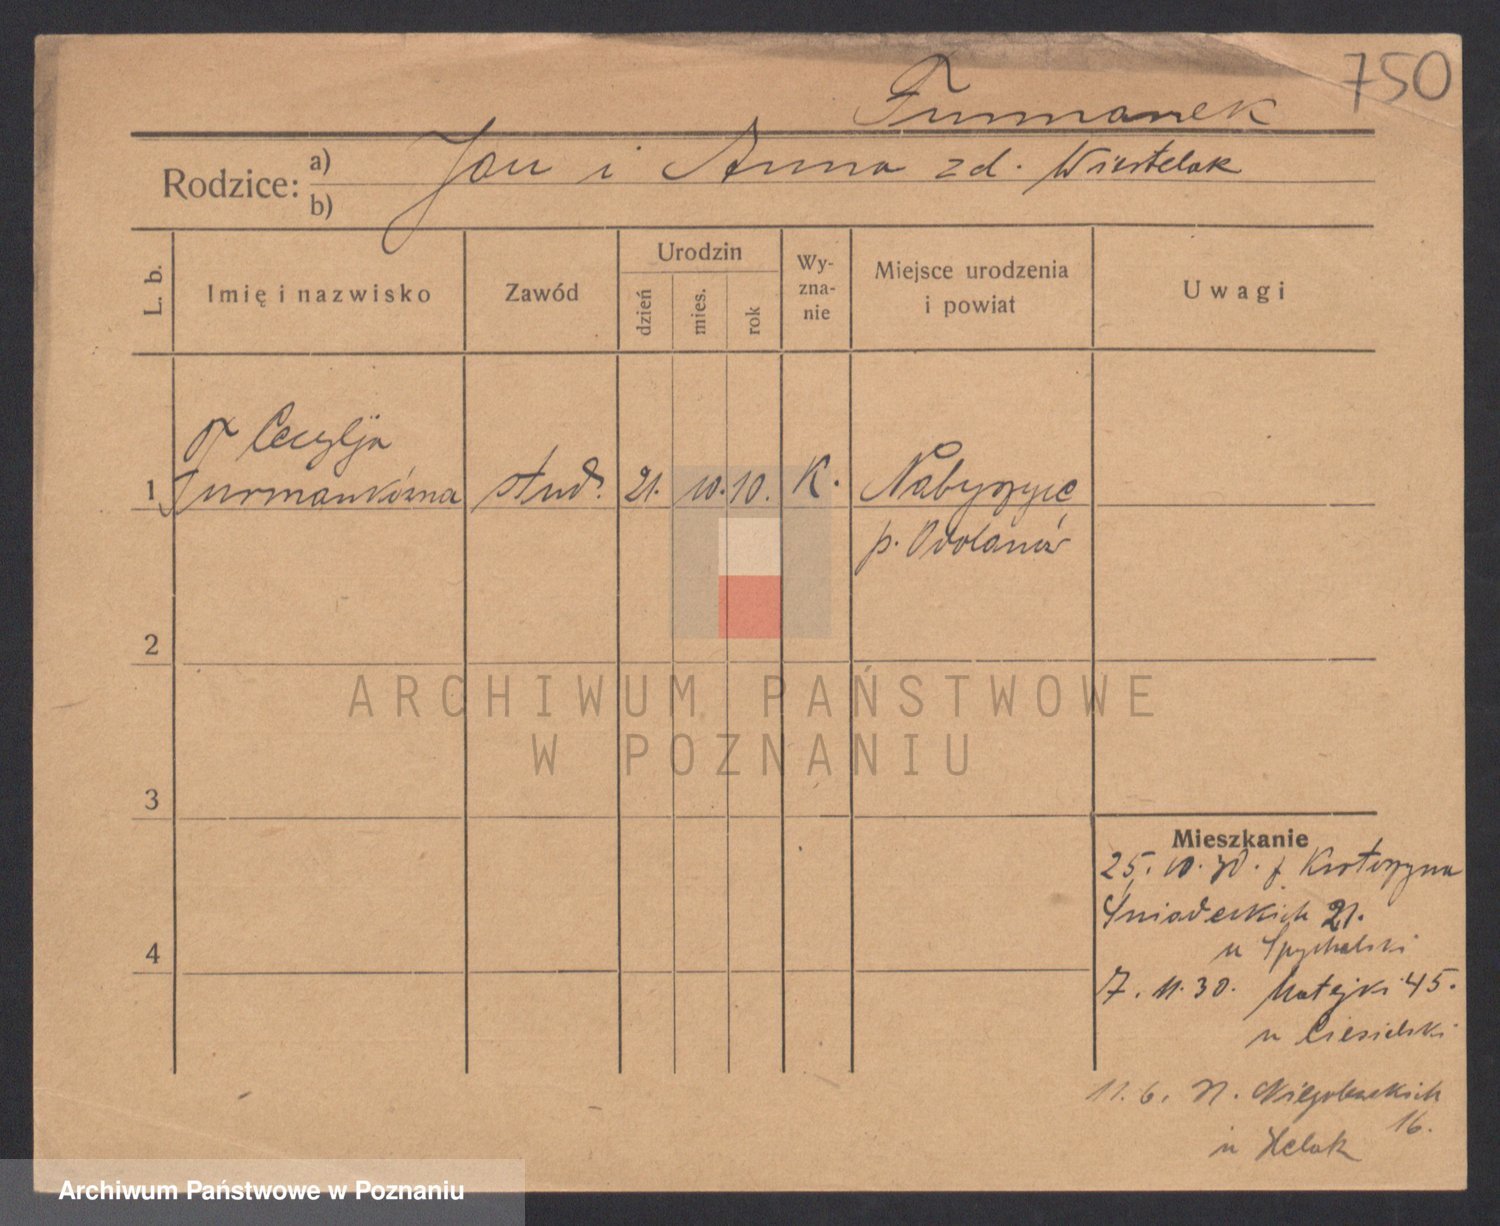 750
Furmanek
Rodzice: a) Jan i Anna zd. Wiertelak
b)
L. b.
Imię i nazwisko
Zawód
Urodzin
dzień
mies.
rok
Wy-
zna-
nie
Miejsce urodzenia
i powiat
Uwagi
Cecylja
1 Furmankówna stud. 21. 10. 10. K. Nabyszyce
p. Odolanów
2
ARCHIWUM PAŃSTWOWE
W POZNANIU
3
Mieszkanie
25. 10. 30. z Krotoszyna
Śniadeckich 21.
4
u Spychalski
7. 11. 30. Matejki 45.
u Ciesielski
11. 6. 31. Niegolewskich
16.
u Helak
Archiwum Państwowe w Poznaniu